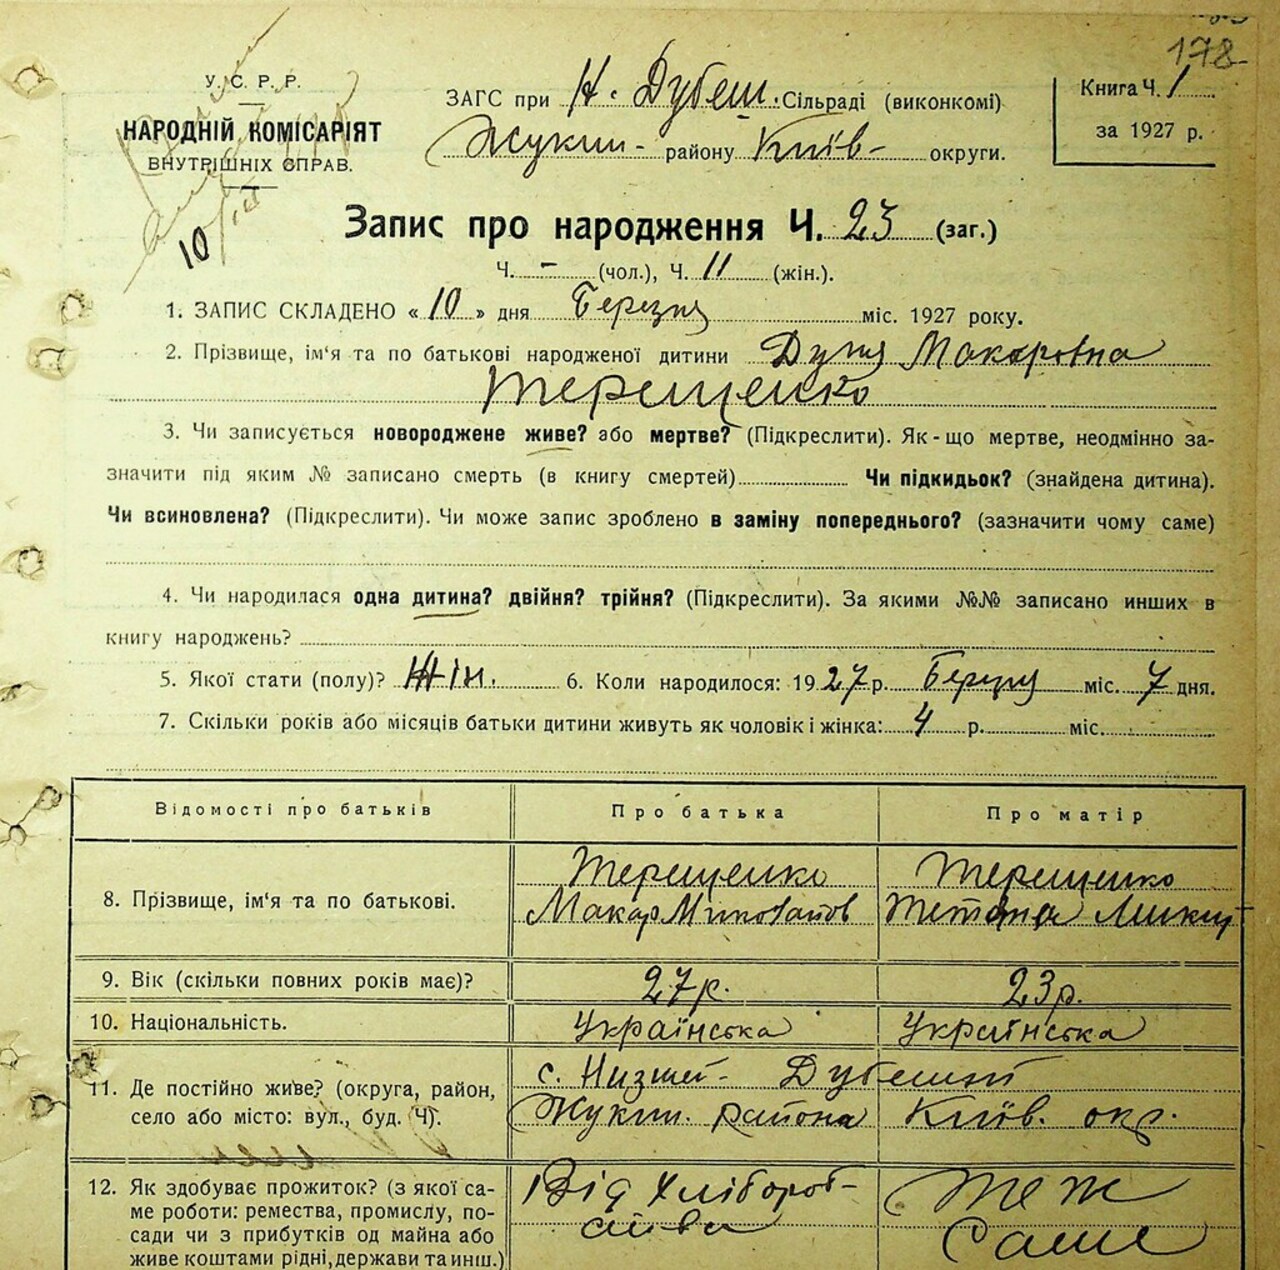 178
У. С. Р. Р.
НАРОДНІЙ КОМІСАРІЯТ
ВНУТРІШНІХ СПРАВ.
10
ЗАГС при Н. Дубеш. Сільраді (виконкомі)
Жукин- району Київ- округи.
Книга Ч. 1
за 1927 р.
Запис про народження Ч. 23 (заг.)
Ч. - (чол.), Ч. 11 (жін.).
1. ЗАПИС СКЛАДЕНО « 10 » дня Березня міс. 1927 року.
2. Прізвище, ім‘я та по батькові народженої дитини Макаровна
Терещенко
3. Чи записується новороджене живе? або мертве? (Підкреслити). Як-що мертве, неодмінно за-
значити під яким № записано смерть (в книгу смертей) Чи підкидьок? (знайдена дитина).
Чи всиновлена? (Підкреслити). Чи може запис зроблено в заміну попереднього? (зазначити чому саме)
4. Чи народилася одна дитина? двійня? трійня? (Підкреслити). За якими №№ записано инших в
книгу народжень?
5. Якої стати (полу)? Жін. 6. Коли народилося: 1927 р. Березня міс. 7 дня.
7. Скільки років або місяців батьки дитини живуть як чоловік і жінка: 4 р. міс.
Відомості про батьків Про батька Про матір
Терещенко Терещенко
8. Прізвище, ім‘я та по батькові. Макар
9. Вік (скільки повних років має)? 27 р. 23 р.
10. Національність. Українська Українська
с. Низшей- Дубешні
11. Де постійно живе? (округа, район,
село або місто: вул., буд. Ч). Жукин. района Київ. окр.
12. Як здобуває прожиток? (з якої са- Від хлібороб- Теж
ме роботи: ремества, промислу, по- ства
сади чи з прибутків од майна або Саме
живе коштами рідні, держави та инш.)